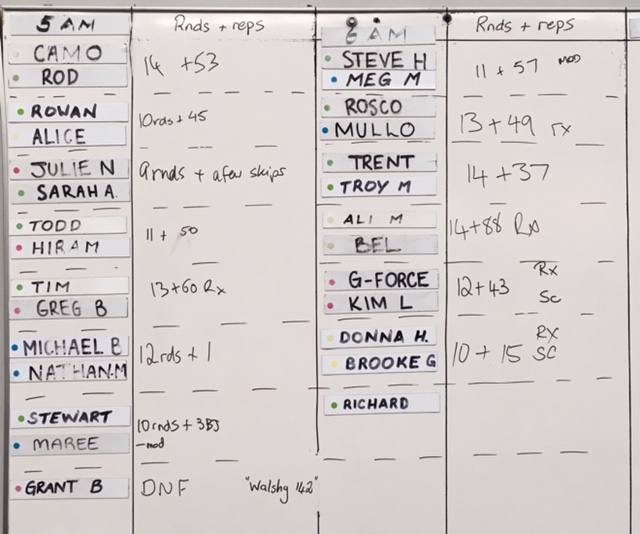 5 AM
Rnds + reps
CAMO
ROD
14 +53
ROWAN
ALICE
10rds + 45
JULIE N
SARAH A.
9rnds + a few skips
TODD
HIRAM
11 + 50
TIM
GREG B
13+60 Rx
MICHAEL B
NATHAN.M
12rds + 1
STEWART
MAREE
10rnds + 3BJ
-mod
GRANT B
DNF
"Walshy 142"
6 AM
Rnds + reps
STEVE H
MEG M
11 + 57 MOD
ROSCO
MULLO
13 + 49 rx
TRENT
TROY M
14 +37
ALI M
BEL
14+88 Rx
G-FORCE
KIM L
12+43
Rx
Sc
DONNA H.
BROOKE G
10 + 15
RX
SC
RICHARD